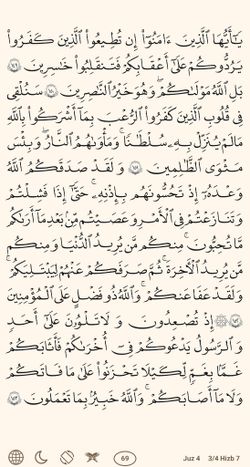 يَـٰٓأَيُّهَا ٱلَّذِينَ ءَامَنُوٓا۟ إِن تُطِيعُوا۟ ٱلَّذِينَ كَفَرُوا۟
يَرُدُّوكُمْ عَلَىٰٓ أَعْقَـٰبِكُمْ فَتَنقَلِبُوا۟ خَـٰسِرِينَ ١٤٩
بَلِ ٱللَّهُ مَوْلَىٰكُمْ ۖ وَهُوَ خَيْرُ ٱلنَّـٰصِرِينَ ١٥٠ سَنُلْقِى
فِى قُلُوبِ ٱلَّذِينَ كَفَرُوا۟ ٱلرُّعْبَ بِمَآ أَشْرَكُوا۟ بِٱللَّهِ
مَا لَمْ يُنَزِّلْ بِهِۦ سُلْطَـٰنًا ۖ وَمَأْوَىٰهُمُ ٱلنَّارُ ۚ وَبِئْسَ
مَثْوَى ٱلظَّـٰلِمِينَ ١٥١ وَلَقَدْ صَدَقَكُمُ ٱللَّهُ
وَعْدَهُۥٓ إِذْ تَحُسُّونَهُم بِإِذْنِهِۦ ۖ حَتَّىٰٓ إِذَا فَشِلْتُمْ
وَتَنَـٰزَعْتُمْ فِى ٱلْأَمْرِ وَعَصَيْتُم مِّنۢ بَعْدِ مَآ أَرَىٰكُم
مَّا تُحِبُّونَ ۚ مِنكُم مَّن يُرِيدُ ٱلدُّنْيَا وَمِنكُم
مَّن يُرِيدُ ٱلْـَٔاخِرَةَ ۚ ثُمَّ صَرَفَكُمْ عَنْهُمْ لِيَبْتَلِيَكُمْ ۖ
وَلَقَدْ عَفَا عَنكُمْ ۗ وَٱللَّهُ ذُو فَضْلٍ عَلَى ٱلْمُؤْمِنِينَ
١٥٢ ۞ إِذْ تُصْعِدُونَ وَلَا تَلْوُۥنَ عَلَىٰٓ أَحَدٍ
وَٱلرَّسُولُ يَدْعُوكُمْ فِىٓ أُخْرَىٰكُمْ فَأَثَـٰبَكُمْ
غَمًّۢا بِغَمٍّ لِّكَيْلَا تَحْزَنُوا۟ عَلَىٰ مَا فَاتَكُمْ
وَلَا مَآ أَصَـٰبَكُمْ ۗ وَٱللَّهُ خَبِيرٌۢ بِمَا تَعْمَلُونَ ١٥٣
69 Juz 4 3/4 Hizb 7